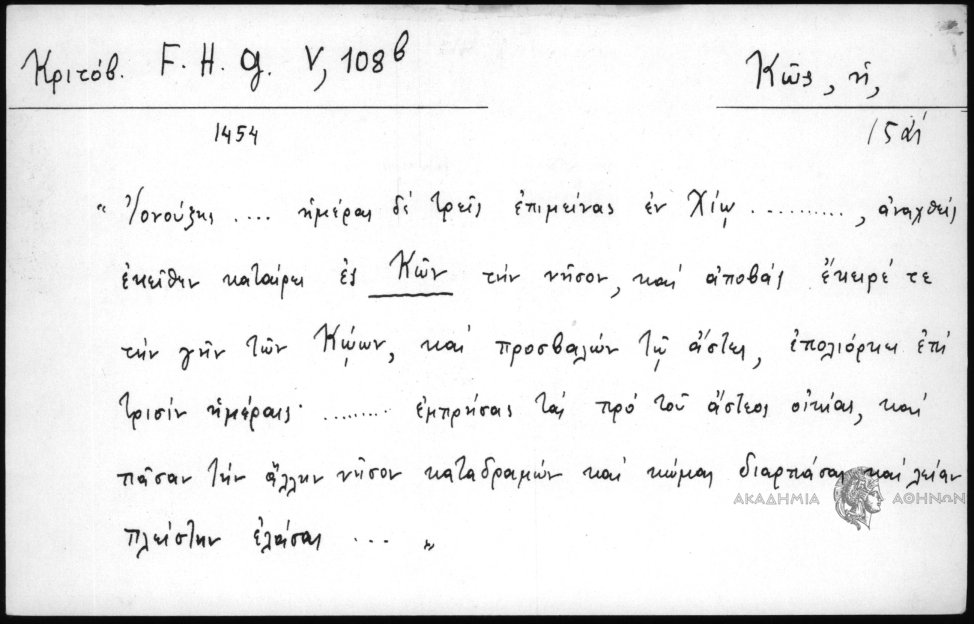 Κριτόβ. F. H. g. V, 108β
Κῶς, ἡ,
1454
15 αἰ
“ Ἰονούζης .... ἡμέρας δὲ τρεῖς ἐπιμείνας ἐν Χίῳ .........., ἀναχθείς
ἐκεῖθεν καταίρει ἐς Κῶν τὴν νῆσον, καὶ ἀποβάς ἔκειρέ τε
τὴν γῆν τῶν Κῴων, καὶ προσβαλών τῷ ἄστει, ἐπολιόρκει ἐπὶ
τρισίν ἡμέραις· ......... ἐμπρήσας τάς πρό τοῦ ἄστεος οἰκίας, καὶ
πᾶσαν τὴν ἄλλην νῆσον καταδραμών καὶ κώμας διαρπάσας καὶ λείαν
πλείστην ἐλάσας ... „
ΑΚΑΔΗΜΙΑ ΑΘΗΝΩΝ